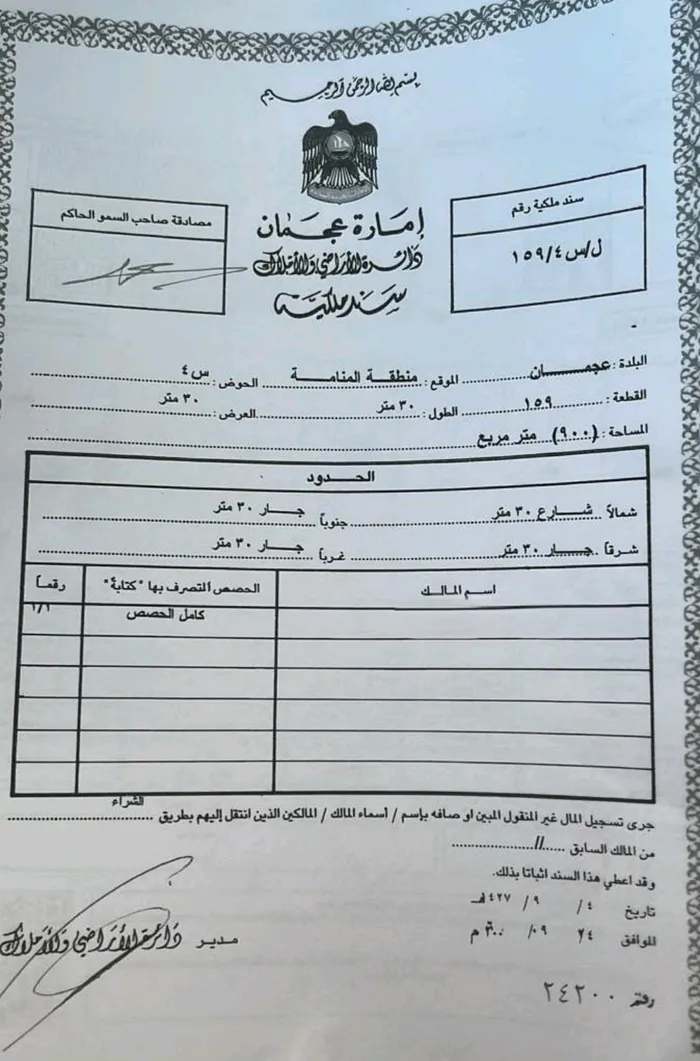 بسم الله الرحمن الرحيم
سند ملكية رقم
ل/س٤/١٥٩
إمارة عجمان
دائرة الأراضي والأملاك
سند ملكية
مصادقة صاحب السمو الحاكم
البلدة: عجمـــان الموقع: منطقـة المنامـة الحوض: س ٤
القطعة: ١٥٩ الطول: ٣٠ متر العرض: ٣٠ متر
المساحة: (٩٠٠) متر مربع
الحـــدود
شمالاً شـــارع ٣٠ متر جنوباً جـــار ٣٠ متر
شرقاً جـــار ٣٠ متر غرباً جـــار ٣٠ متر
اســم المـالـك الحصص المتصرف بها "كتابة" رقمـاً
كامل الحصص ١/١
الشراء
جرى تسجيل المال غير المنقول المبين او صافه بإسم / أسماء المالك / المالكين الذين انتقل إليهم بطريق
من المالك السابق //
وقد اعطي هذا السند اثباتا بذلك.
تاريخ ٤ / ٩ / ٤٢٧هـ
الموافق ٢٤ /٠٩ م
مدير دائرة الأراضي والأملاك
رقم ٢٤٢٠٠